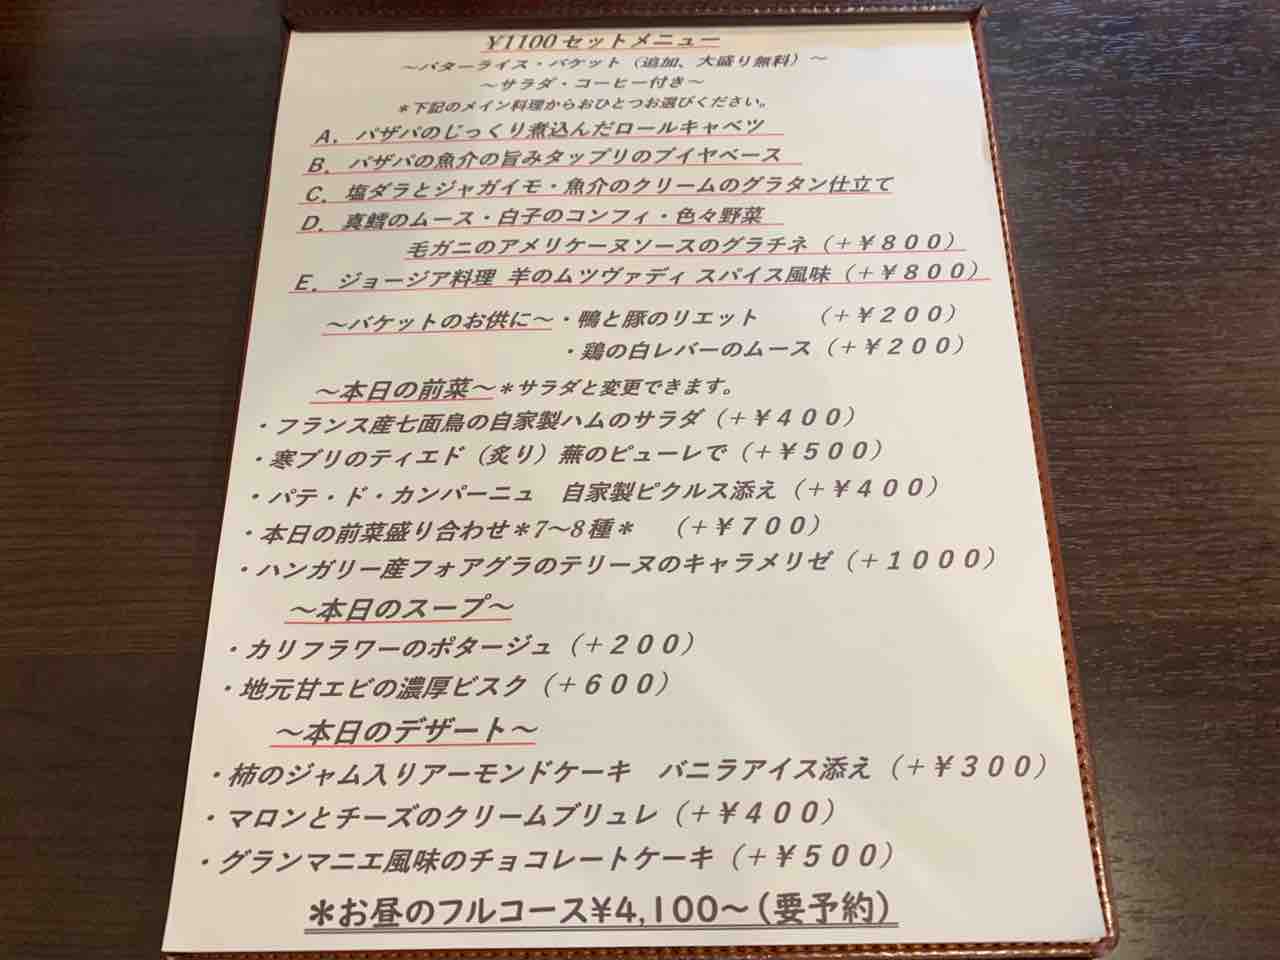 ¥1100セットメニュー
～バターライス・バケット（追加、大盛り無料）～
～サラダ・コーヒー付き～
＊下記のメイン料理からおひとつお選びください。
A．バザバのじっくり煮込んだロールキャベツ
B．バザバの魚介の旨みタップリのブイヤベース
C．塩ダラとジャガイモ・魚介のクリームのグラタン仕立て
D．真鱈のムース・白子のコンフィ・色々野菜
毛ガニのアメリケーヌソースのグラチネ（＋￥８００）
E．ジョージア料理 羊のムツヴァディ スパイス風味（＋￥８００）
～バケットのお供に～・鴨と豚のリエット （＋￥２００）
・鶏の白レバーのムース（＋￥２００）
～本日の前菜～＊サラダと変更できます。
・フランス産七面鳥の自家製ハムのサラダ（＋￥４００）
・寒ブリのティエド（炙り）蕪のピューレで（＋￥５００）
・パテ・ド・カンパーニュ　自家製ピクルス添え（＋￥４００）
・本日の前菜盛り合わせ＊7～8種＊ （＋￥７００）
・ハンガリー産フォアグラのテリーヌのキャラメリゼ（＋１０００）
～本日のスープ～
・カリフラワーのポタージュ（＋２００）
・地元甘エビの濃厚ビスク（＋６００）
～本日のデザート～
・柿のジャム入りアーモンドケーキ　バニラアイス添え（＋￥３００）
・マロンとチーズのクリームブリュレ（＋￥４００）
・グランマニエ風味のチョコレートケーキ（＋￥５００）
＊お昼のフルコース¥4,100～（要予約）